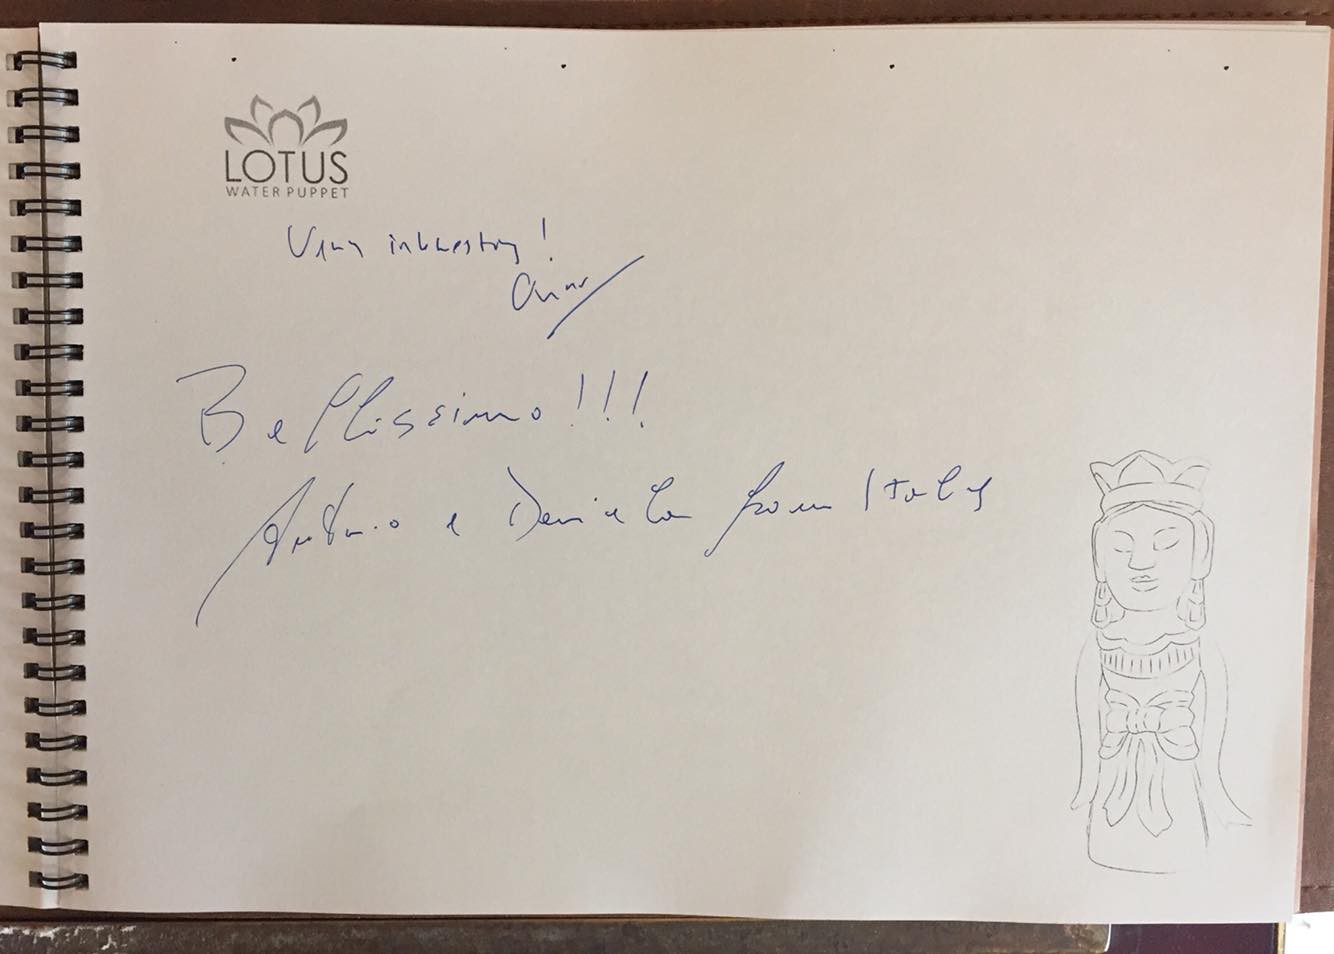 LOTUS
WATER PUPPET
Very interesting!
Bellissimo!!!
Antonio e Daniela from Italy